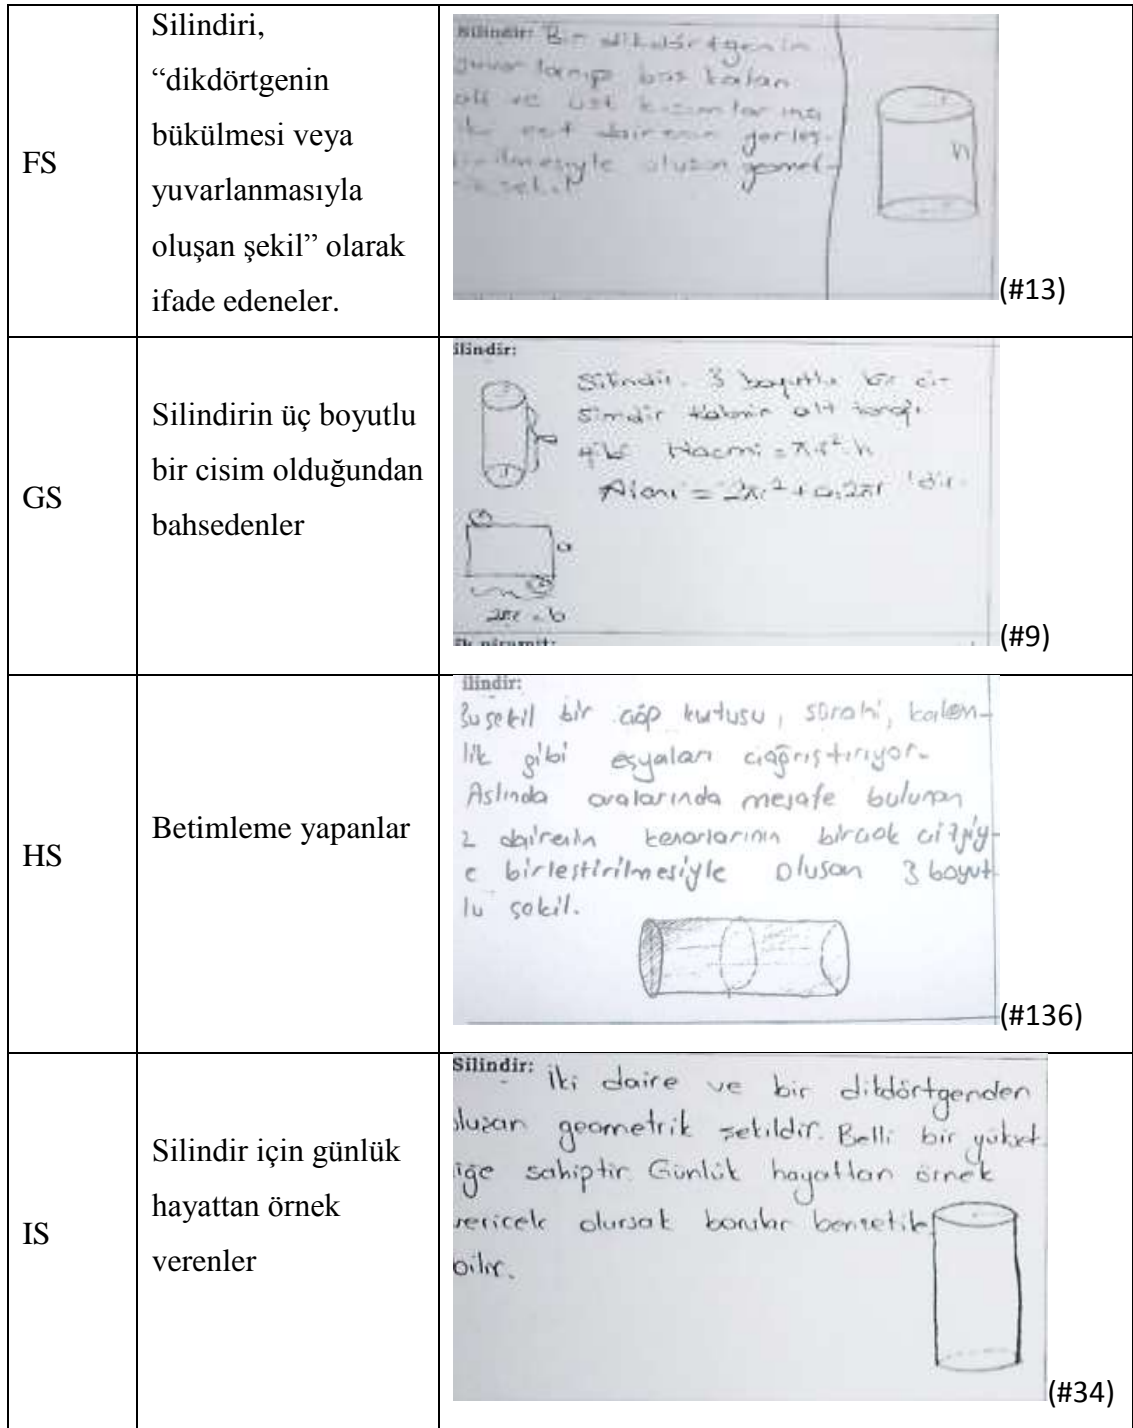 FS
Silindiri,
“dikdörtgenin
bükülmesi veya
yuvarlanmasıyla
oluşan şekil” olarak
ifade edeneler.
Silindir: Bir dikdörtgenin
yuvarlanıp boş kalan
alt ve üst kısımlarına
iki eşit dairenin yerleş-
tirilmesiyle oluşan geomet-
şekil
h
(#13)
GS
Silindirin üç boyutlu
bir cisim olduğundan
bahsedenler
ilindir:
Silindir 3 boyutlu bir ci-
simdir alt
gibi Hacmi = π.r².h
Alanı = 2πr² + a.2πr 'dir.
a
2πr = b
ik piramit:
(#9)
HS
Betimleme yapanlar
ilindir:
Bu şekil bir çöp kutusu, sürahi, kalem-
lik gibi eşyaları çağrıştırıyor.
Aslında aralarında mesafe bulunan
2 dairenin kenarlarının birçok çizgiy-
e birleştirilmesiyle oluşan 3 boyut-
lu şekil.
(#136)
IS
Silindir için günlük
hayattan örnek
verenler
Silindir: İki daire ve bir dikdörtgenden
oluşan geometrik şekildir. Belli bir yüksek
iğe sahiptir. Günlük hayattan örnek
vericek olursak borular benzetile
bilir.
(#34)